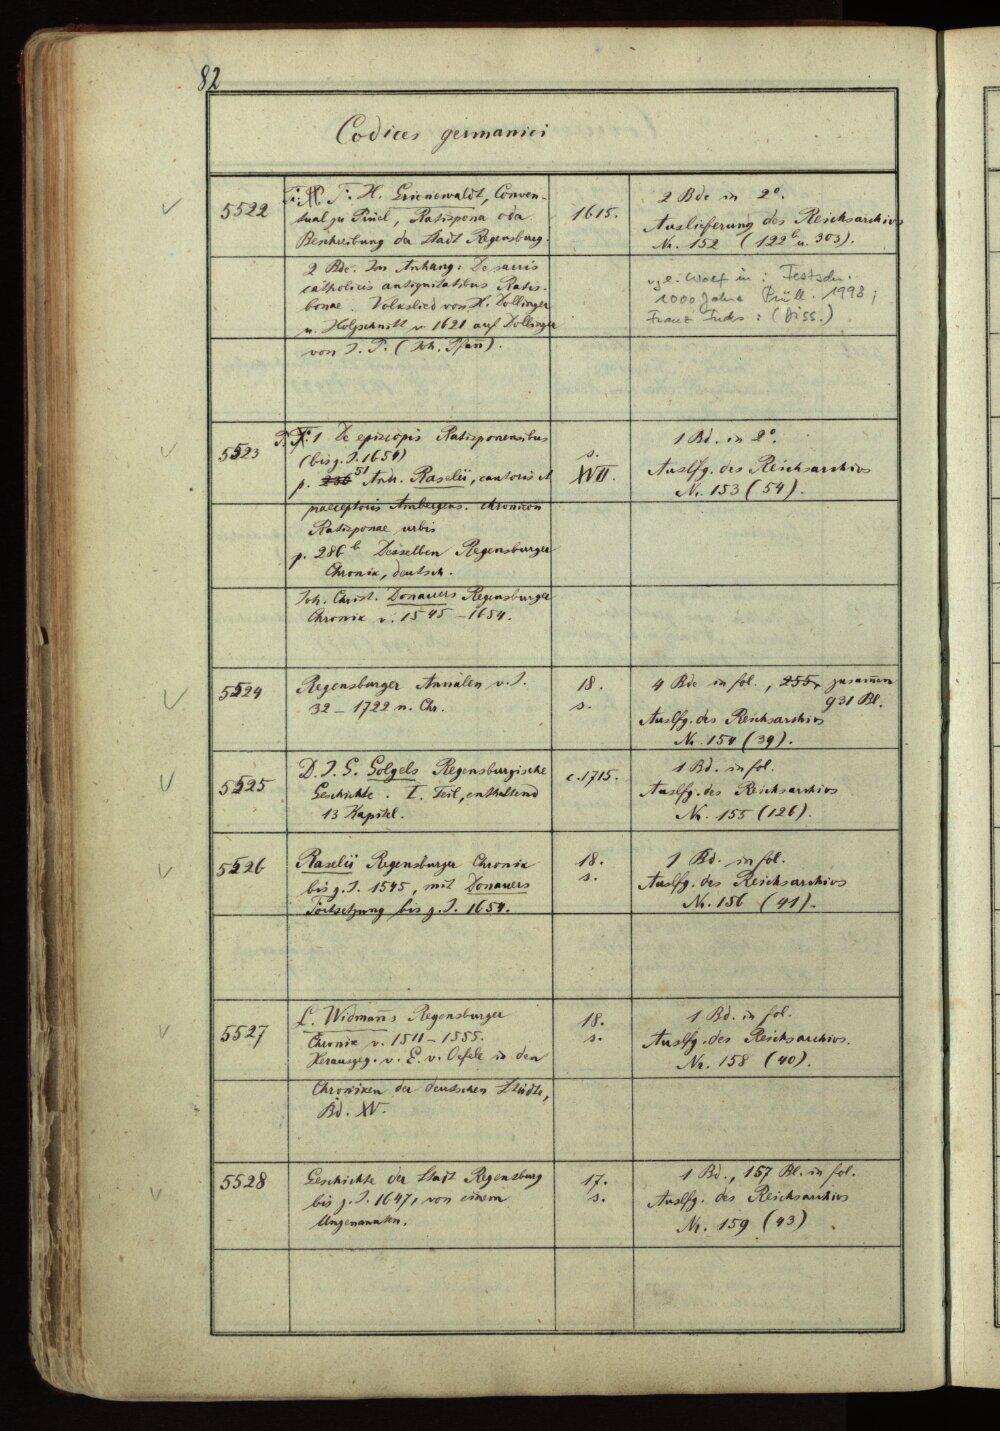 82
Codices germanici
5522
F. H. Grienewaldt, Conven-
tual zu Prüel, Ratispona oder
Beschreibung der Stadt Regensburg.
2 Bde. Im Anhang: De sacris
catholicis antiquitatibus Ratis-
bonae. Volkslied von H. Dollinger
u. Holzschnitt v. 1621 auf Dollinger
von J. P. (Joh. Pfan̄).
1615.
2 Bde in 2°.
Auslieferung des Reichsarchivs
Nr. 152 (122b u. 303).
vgl. Wolf in: Festschr.
1000 Jahre Prüll. 1998;
Franz Fuchs: (Diss.)
5523
1 De episcopis Ratisponensibus
(bis z. J. 1654)
p. 236 51 Andr. Raselii, cantoris et
praeceptoris Ambergens. chronicon
Ratisponae urbis
p. 286b Desselben Regensburger
Chronik, deutsch.
Joh. Christ. Donauers Regensburger
Chronik v. 1545–1654.
s.
XVII.
1 Bd. in 2°.
Auslfg. des Reichsarchivs
Nr. 153 (54).
5524
Regensburger Annalen v. J.
32 – 1722 n. Chr.
18.
s.
4 Bde in fol., 255, zusam̄en
931 Bl.
Auslfg. des Reichsarchivs
Nr. 154 (39).
5525
D. J. G. Golgels Regensburgische
Geschichte. I. Teil, enthaltend
13 Kapitel.
c. 1715.
1 Bd. in fol.
Auslfg. des Reichsarchivs
Nr. 155 (126).
5526
Raselii Regensburger Chronik
bis z. J. 1545, mit Donauers
Fortsetzung bis z. J. 1654.
18.
s.
1 Bd. in fol.
Auslfg. des Reichsarchivs
Nr. 156 (41).
5527
L. Widman̄s Regensburger
Chronik v. 1511–1555.
Herausgeg. v. E. v. Oefele in den
Chroniken der deutschen Städte,
Bd. XV.
18.
s.
1 Bd. in fol.
Auslfg. des Reichsarchivs.
Nr. 158 (40).
5528
Geschichte der Stadt Regensburg
bis z. J. 1647, von einem
Ungenannten.
17.
s.
1 Bd., 157 Bl. in fol.
Auslfg. des Reichsarchivs
Nr. 159 (43)